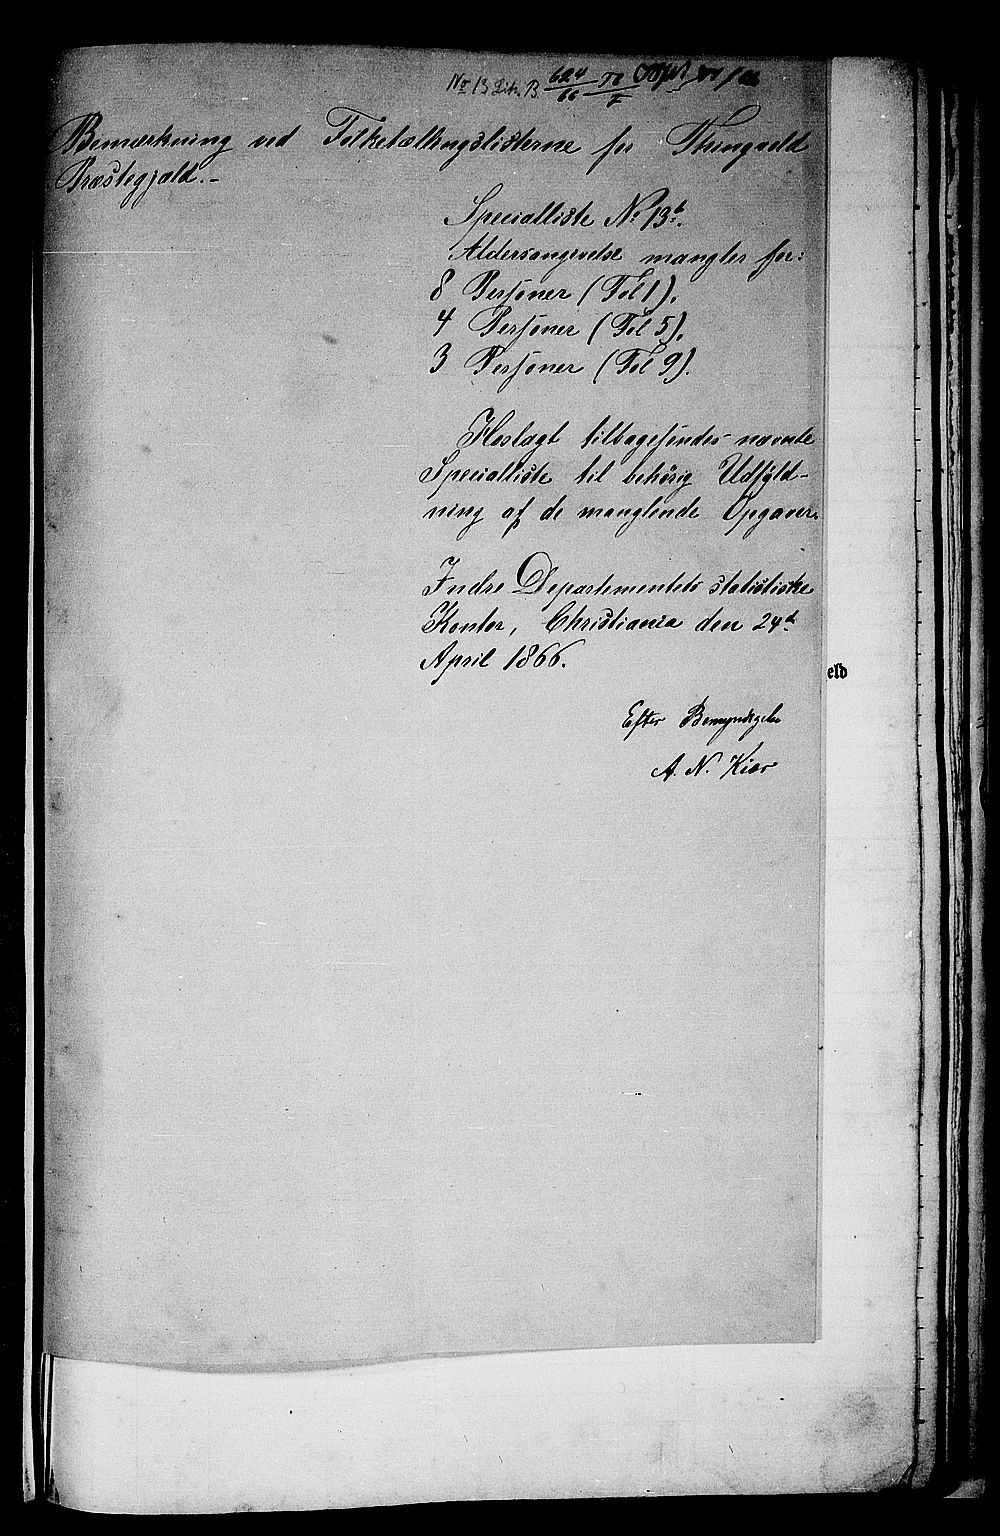 No 13 Litr. B 624/66
Bemærkning ved Folketællingslisterne for Thingvold
Præstegjæld.-
Specialliste No 13b.
Aldersangivelse mangler for:
8 Personer (Fol 1).
4 Personer (Fol 5).
3 Personer (Fol 9).
Hoslagt tilbagesendes nævnte
Specialliste til behörig Udfyld-
ning af de manglende Opgaver.
Indre Departementets statistiske
Kontor, Christiania den 24d
April 1866.
eld
Efter Bemyndigelse
A. N. Kiær